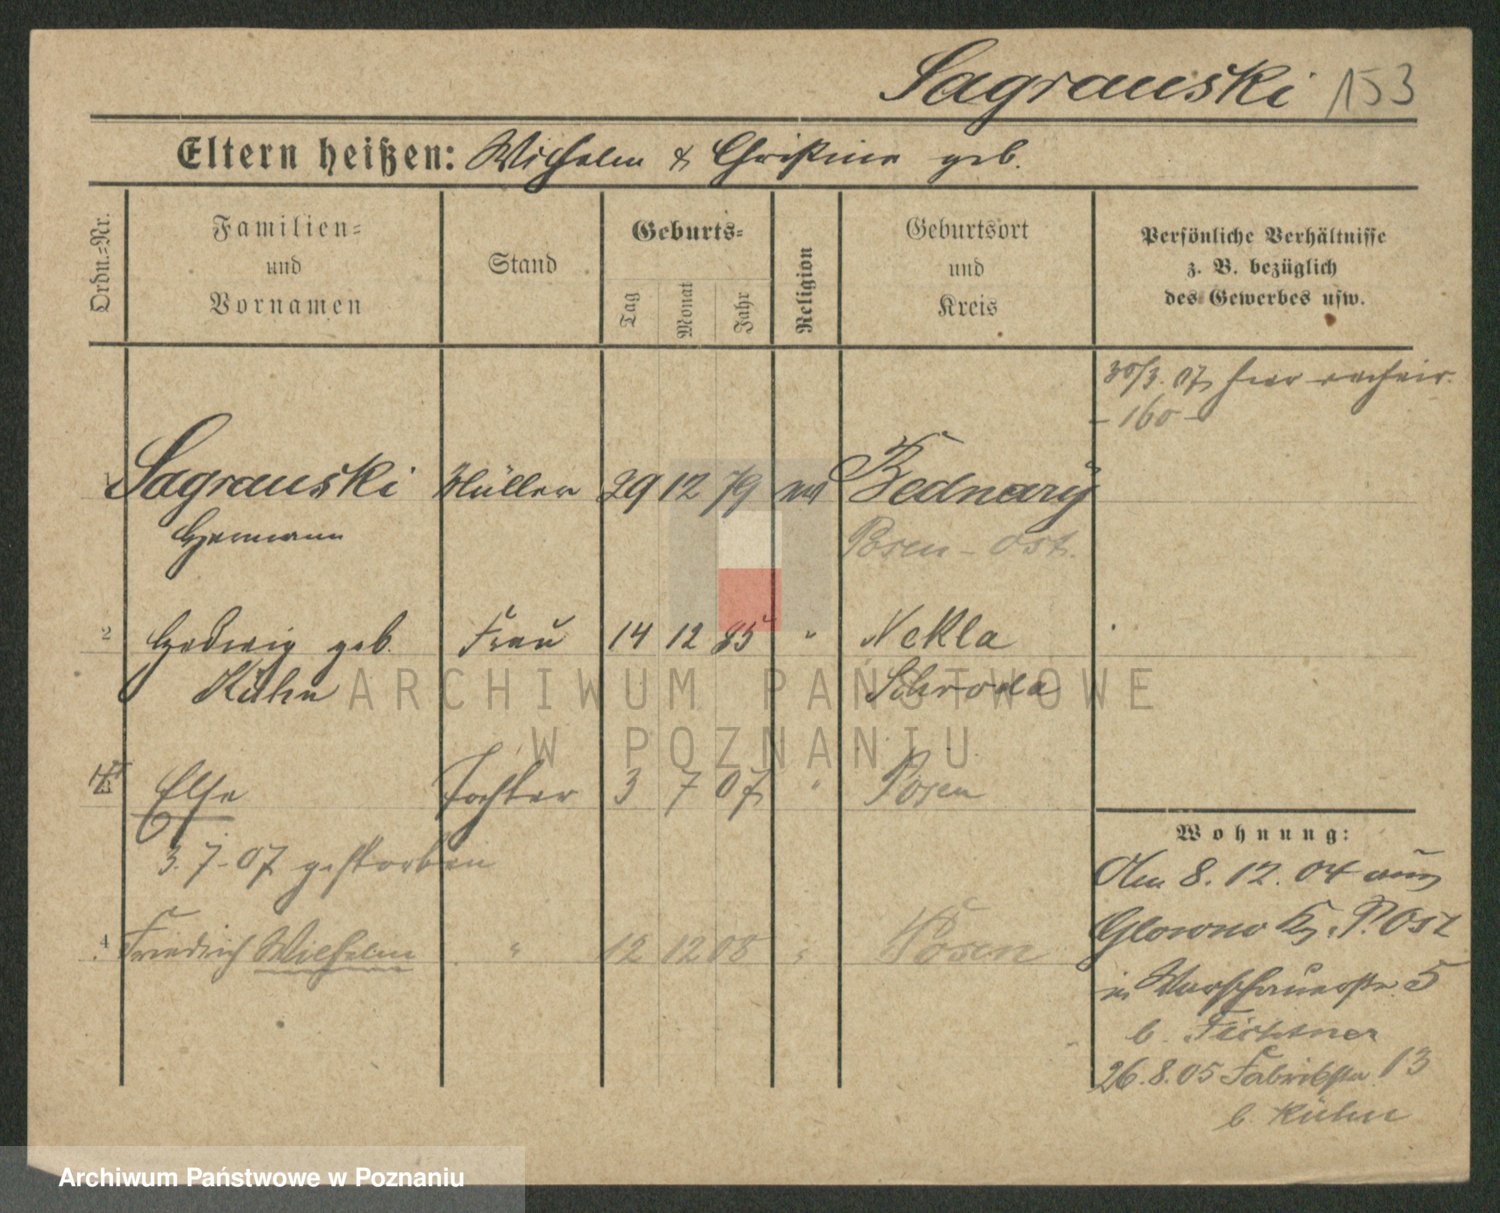 Sagrauski 153
Eltern heißen: Wilhelm & Christine geb.
Ordn.=Nr.
Familien=
und
Vornamen
Stand
Geburts=
Tag
Monat
Jahr
Religion
Geburtsort
und
Kreis
Persönliche Verhältnisse
z. B. bezüglich
des Gewerbes usw.
30/3. 07 hier
- 160 -
1 Sagrauski Müller 29 12 79 Bednary
Hermann Posen - Ost.
2 Hedwig geb. Frau 14 12 85 " Nekla
Kühn Schroda
Else Tochter 3 7 07 " Posen
3. 7. 07 gestorben
4 Friedrich Wilhelm " 12 12 08 " Posen
Wohnung:
Am 8. 12. 04 aus
Glowno P. Ost
in Warschauerstr. 5
b. Fichtner
26. 8. 05 Fabrikstr. 13
b. Kühn
ARCHIWUM PAŃSTWOWE
W POZNANIU
Archiwum Państwowe w Poznaniu